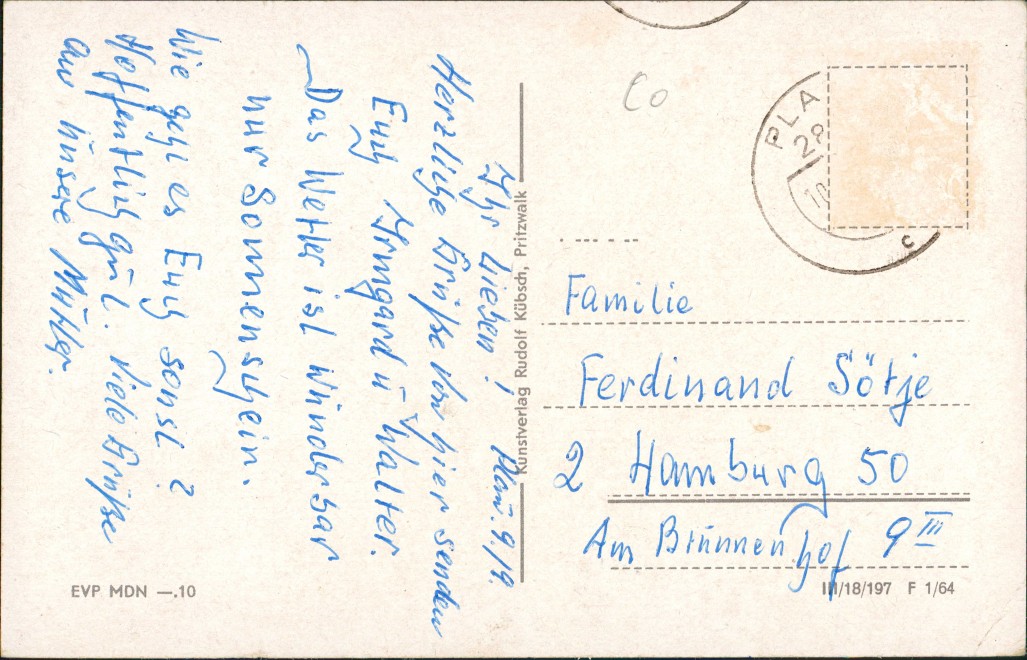 Ihr Lieben! Plau. 9./9.
Herzliche Grüße von hier senden
Euch Irmgard u Walter.
Das Wetter ist wunderbar
nur Sonnenschein.
Wie geht es Euch sonst?
Hoffentlich gut. Viele Grüße
an unsere Mutter.
EVP MDN —.10
Kunstverlag Rudolf Kübsch, Pritzwalk
Co
PLA
28
10
c
Familie
Ferdinand Sötje
2 Hamburg 50
Am Brunnenhof 9 III
III/18/197 F 1/64